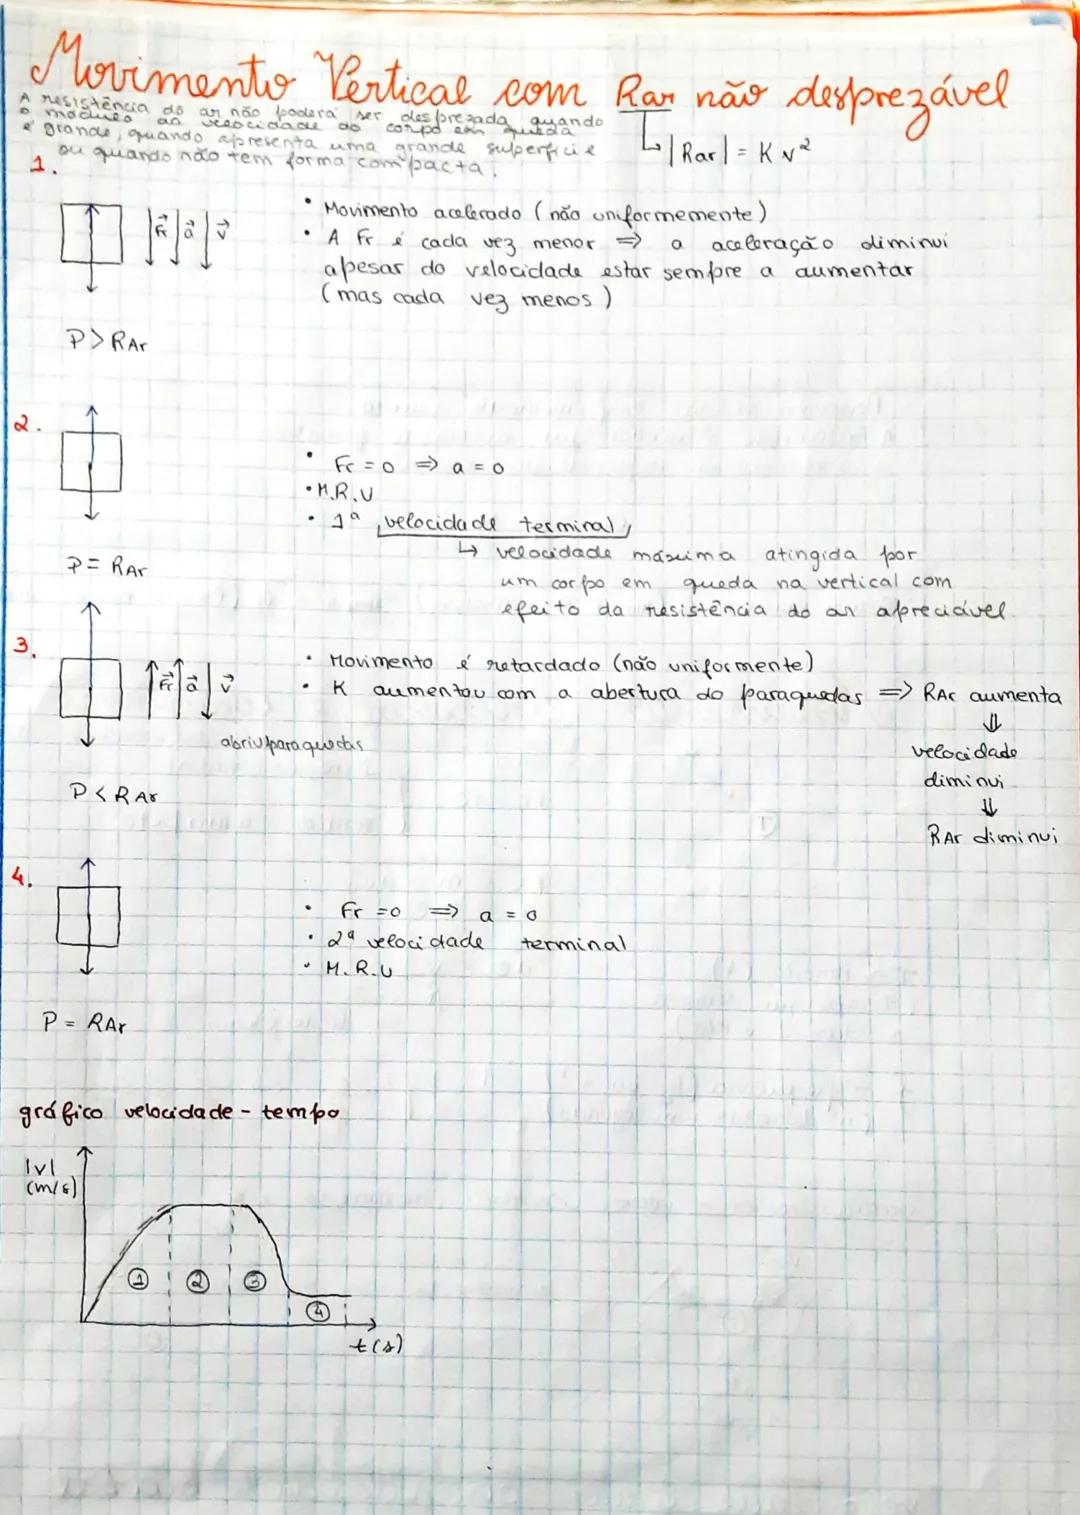 Movimento Vertical com Rar não desprezável
A resistência do ar não poderá ser desprezada quando
o módulo da velocidade do corpo em queda
é grande, quando apresenta uma grande superfície
ou quando não tem forma compacta.
|Rar| = K v²
1.
Fr a v
• Movimento acelerado (não uniformemente)
• A Fr é cada vez menor ⇒ a aceleração diminui
apesar do velocidade estar sempre a aumentar
(mas cada vez menos)
P > RAr
2.
• Fr = 0 ⇒ a = 0
• M.R.U
• 1ª velocidade terminal,
↳ velocidade máxima atingida por
um corpo em queda na vertical com
efeito da resistência do ar apreciável.
P = RAr
3.
Fr a v
• Movimento é retardado (não uniformente)
• K aumentou com a abertura do paraquedas ⇒ RAr aumenta
⇓
abriu paraquedas
velocidade
diminui
⇓
P < RAr
RAr diminui
4.
• Fr = 0 ⇒ a = 0
• 2ª velocidade terminal
• M.R.U
P = RAr
gráfico velocidade - tempo
|v|
(m/s)
1 2 3
4
t(s)